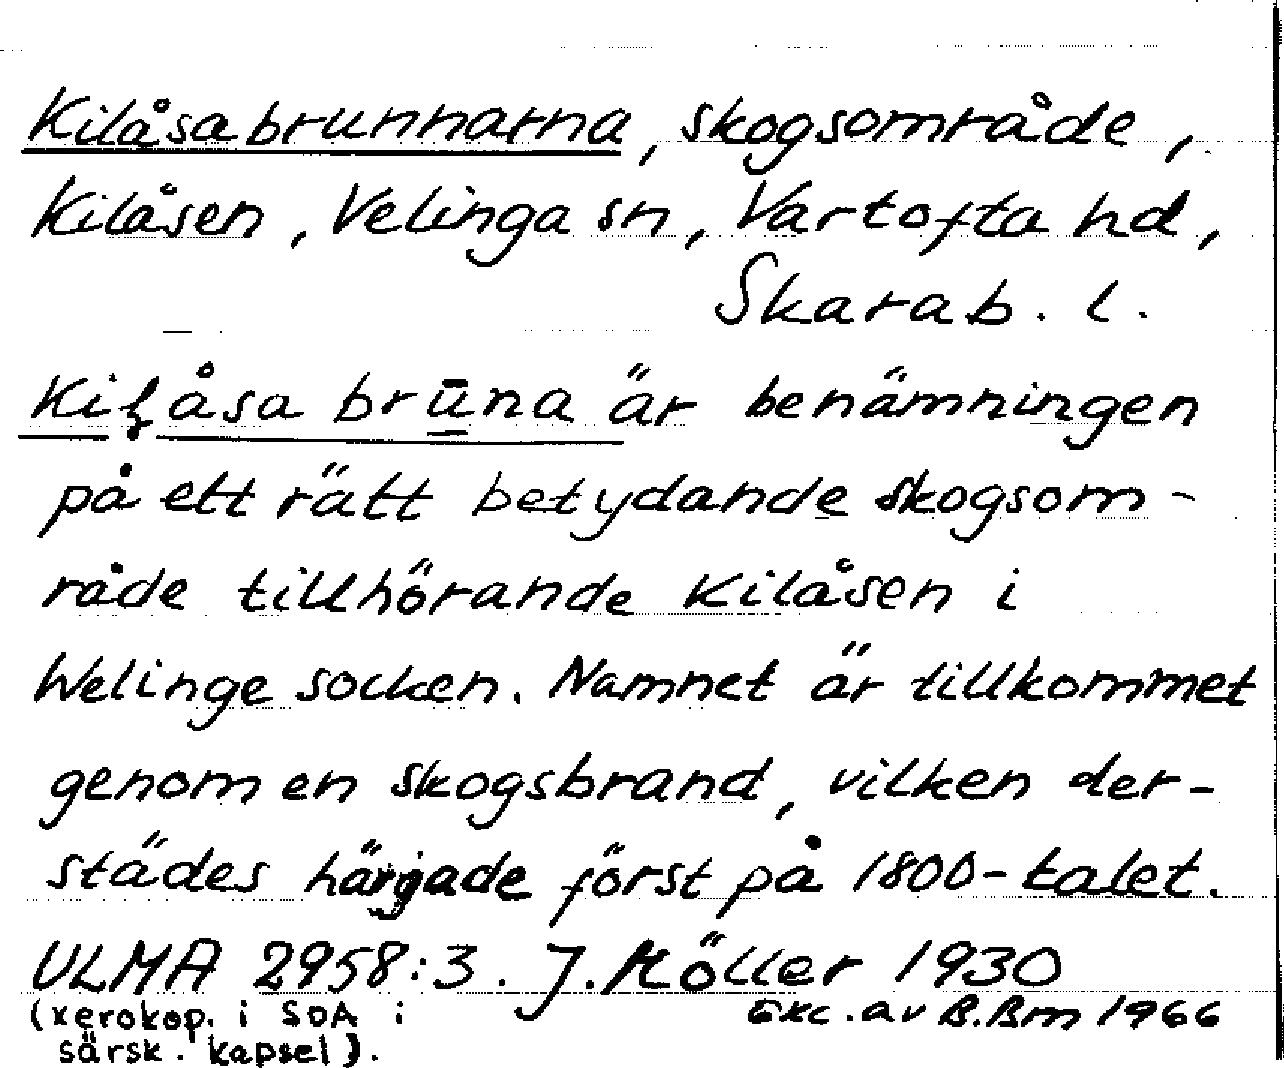 Kilåsabrunnarna, skogsområde,
Kilåsen, Velinga sn, Vartofta hd,
Skarab. l.
Kiłåsa brūna är benämningen
på ett rätt betydande skogsom-
råde tillhörande Kilåsen i
Welinge socken. Namnet är tillkommet
genom en skogsbrand, vilken der-
städes härjade först på 1800-talet.
ULMA 2958:3. J. Möller 1930
(xerokop. i SOA i Exc. av B.Bm 1966
särsk. kapsel).